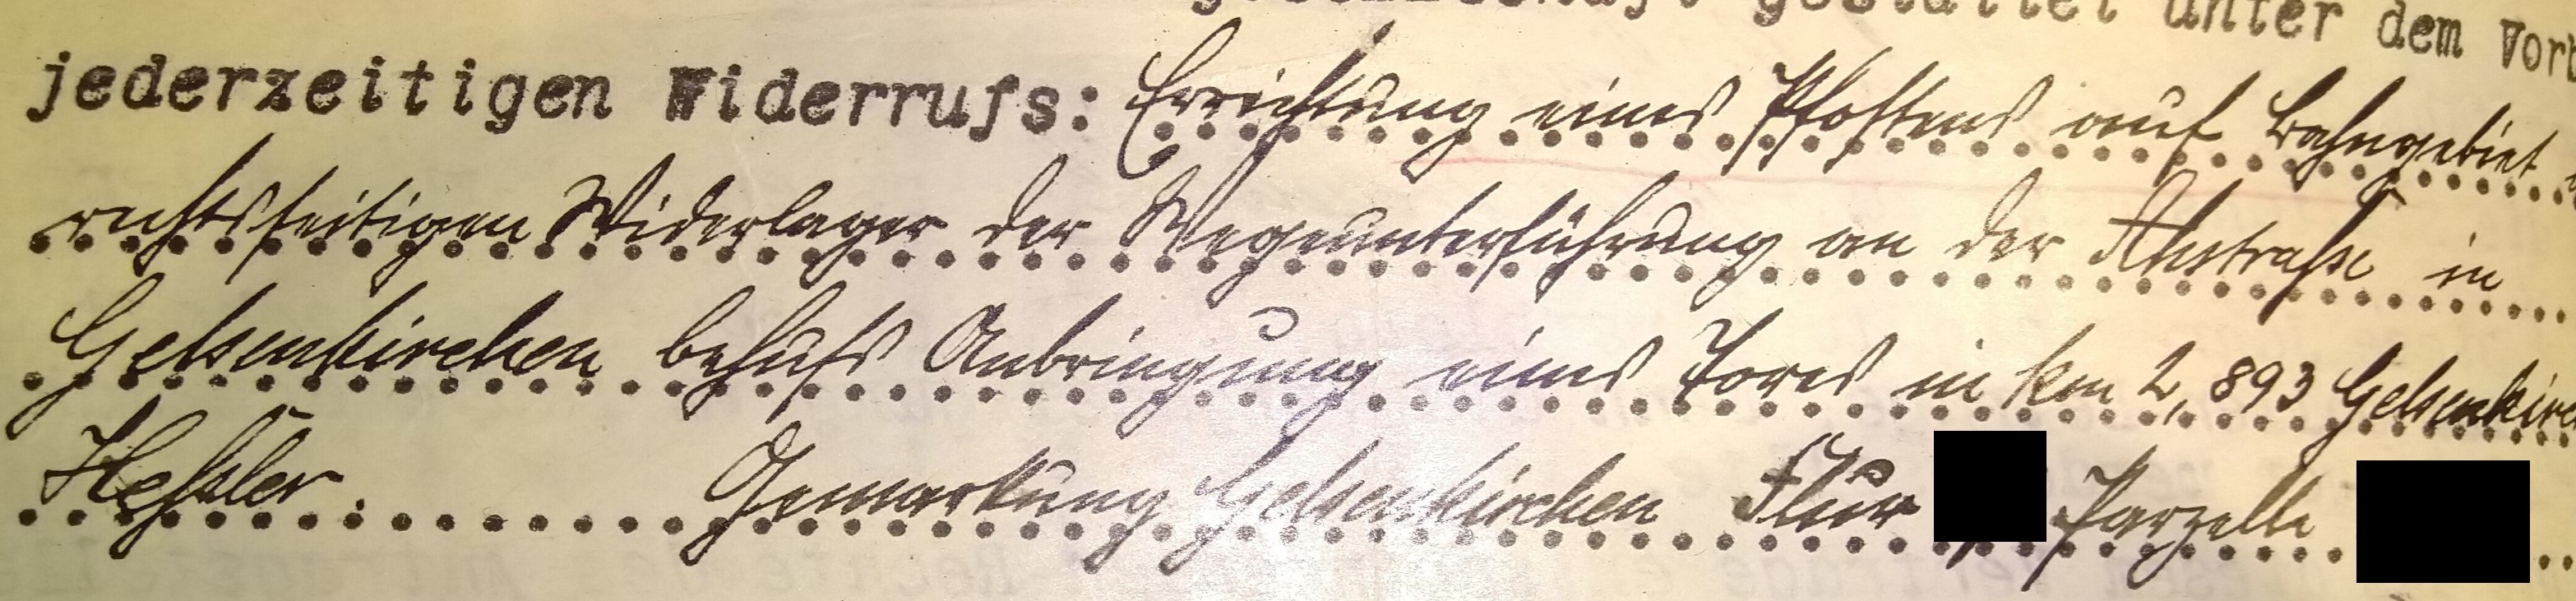 gestattet unter dem Vor
jederzeitigen Widerrufs: Errichtung eines Pfostens auf Bahngebiet
rechtsseitigen Widerlager der Wegeunterführung an der Ahstraße in
Gelsenkirchen behufs Anbringung eines Tores in km 2,893 Gelsenkirc
Heßler. Gemarkung Gelsenkirchen Flur Parzelle